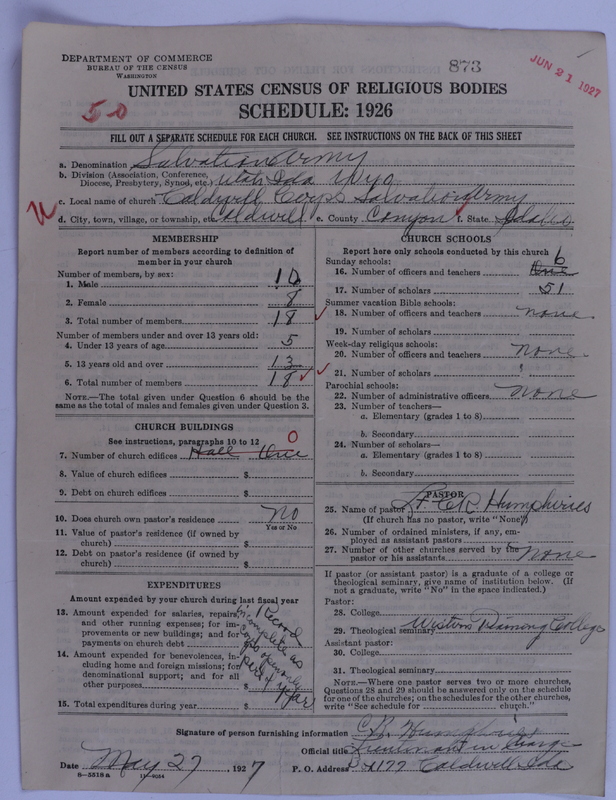 DEPARTMENT OF COMMERCE
BUREAU OF THE CENSUS
WASHINGTON
873
JUN 21 1927
UNITED STATES CENSUS OF RELIGIOUS BODIES
50
SCHEDULE: 1926
FILL OUT A SEPARATE SCHEDULE FOR EACH CHURCH. SEE INSTRUCTIONS ON THE BACK OF THIS SHEET
a. Denomination Salvation Army
b. Division (Association, Conference, Diocese, Presbytery, Synod, etc. Utah Ida Wyo
c. Local name of church Caldwell Corps Salvation Army
d. City, town, village, or township, etc. Caldwell e. County Canyon f. State Idaho
MEMBERSHIP
Report number of members according to definition of
member in your church
Number of members, by sex:
1. Male 10
2. Female 8
3. Total number of members 18
Number of members under and over 13 years old:
4. Under 13 years of age 5
5. 13 years old and over 13
6. Total number of members 18
NOTE.—The total given under Question 6 should be
same as the total of males and females given under Question 3.
CHURCH BUILDINGS
See instructions, paragraphs 10 to 12 0
7. Number of church edifices Hall One
8. Value of church edifices $
9. Debt on church edifices $
10. Does church own pastor's residence No
Yes or No
11. Value of pastor's residence (if owned by
church) $
12. Debt on pastor's residence (if owned by
church) $
EXPENDITURES
Amount expended by your church during last fiscal year
13. Amount expended for salaries, repairs,
and other running expenses; for im-
provements or new buildings; and for
payments on church debt
14. Amount expended for benevolences, in-
cluding home and foreign missions; for
denominational support; and for all
other purposes
Record
incomplete as
Corps
part year
15. Total expenditures during year $
CHURCH SCHOOLS
Report here only schools conducted by this church
Sunday schools: 6
16. Number of officers and teachers One
17. Number of scholars 51
Summer vacation Bible schools:
18. Number of officers and teachers none
19. Number of scholars
Week-day religious schools:
20. Number of officers and teachers none
21. Number of scholars
Parochial schools:
22. Number of administrative officers none
23. Number of teachers—
a. Elementary (grades 1 to 8)
b. Secondary
24. Number of scholars—
a. Elementary (grades 1 to 8)
b. Secondary
PASTOR
25. Name of pastor Humphries
(If church has no pastor, write "None")
26. Number of ordained ministers, if any, em-
ployed as assistant pastors
27. Number of other churches served by the
pastor or his assistants none
If pastor (or assistant pastor) is a graduate of a college or
theological seminary, give name of institution below. (If
not a graduate, write "No" in the space indicated.)
Pastor:
28. College
29. Theological seminary Western Training College
Assistant pastor:
30. College
31. Theological seminary
NOTE.—Where one pastor serves two or more churches,
Questions 28 and 29 should be answered only on the schedule
for one of the churches; on the schedules for the other churches,
write "See schedule for church."
Signature of person furnishing information Humphries
Official title Lieutenant in Charge
Date May 27, 1927 P. O. Address Caldwell Ida
8—5518 a 11—9054